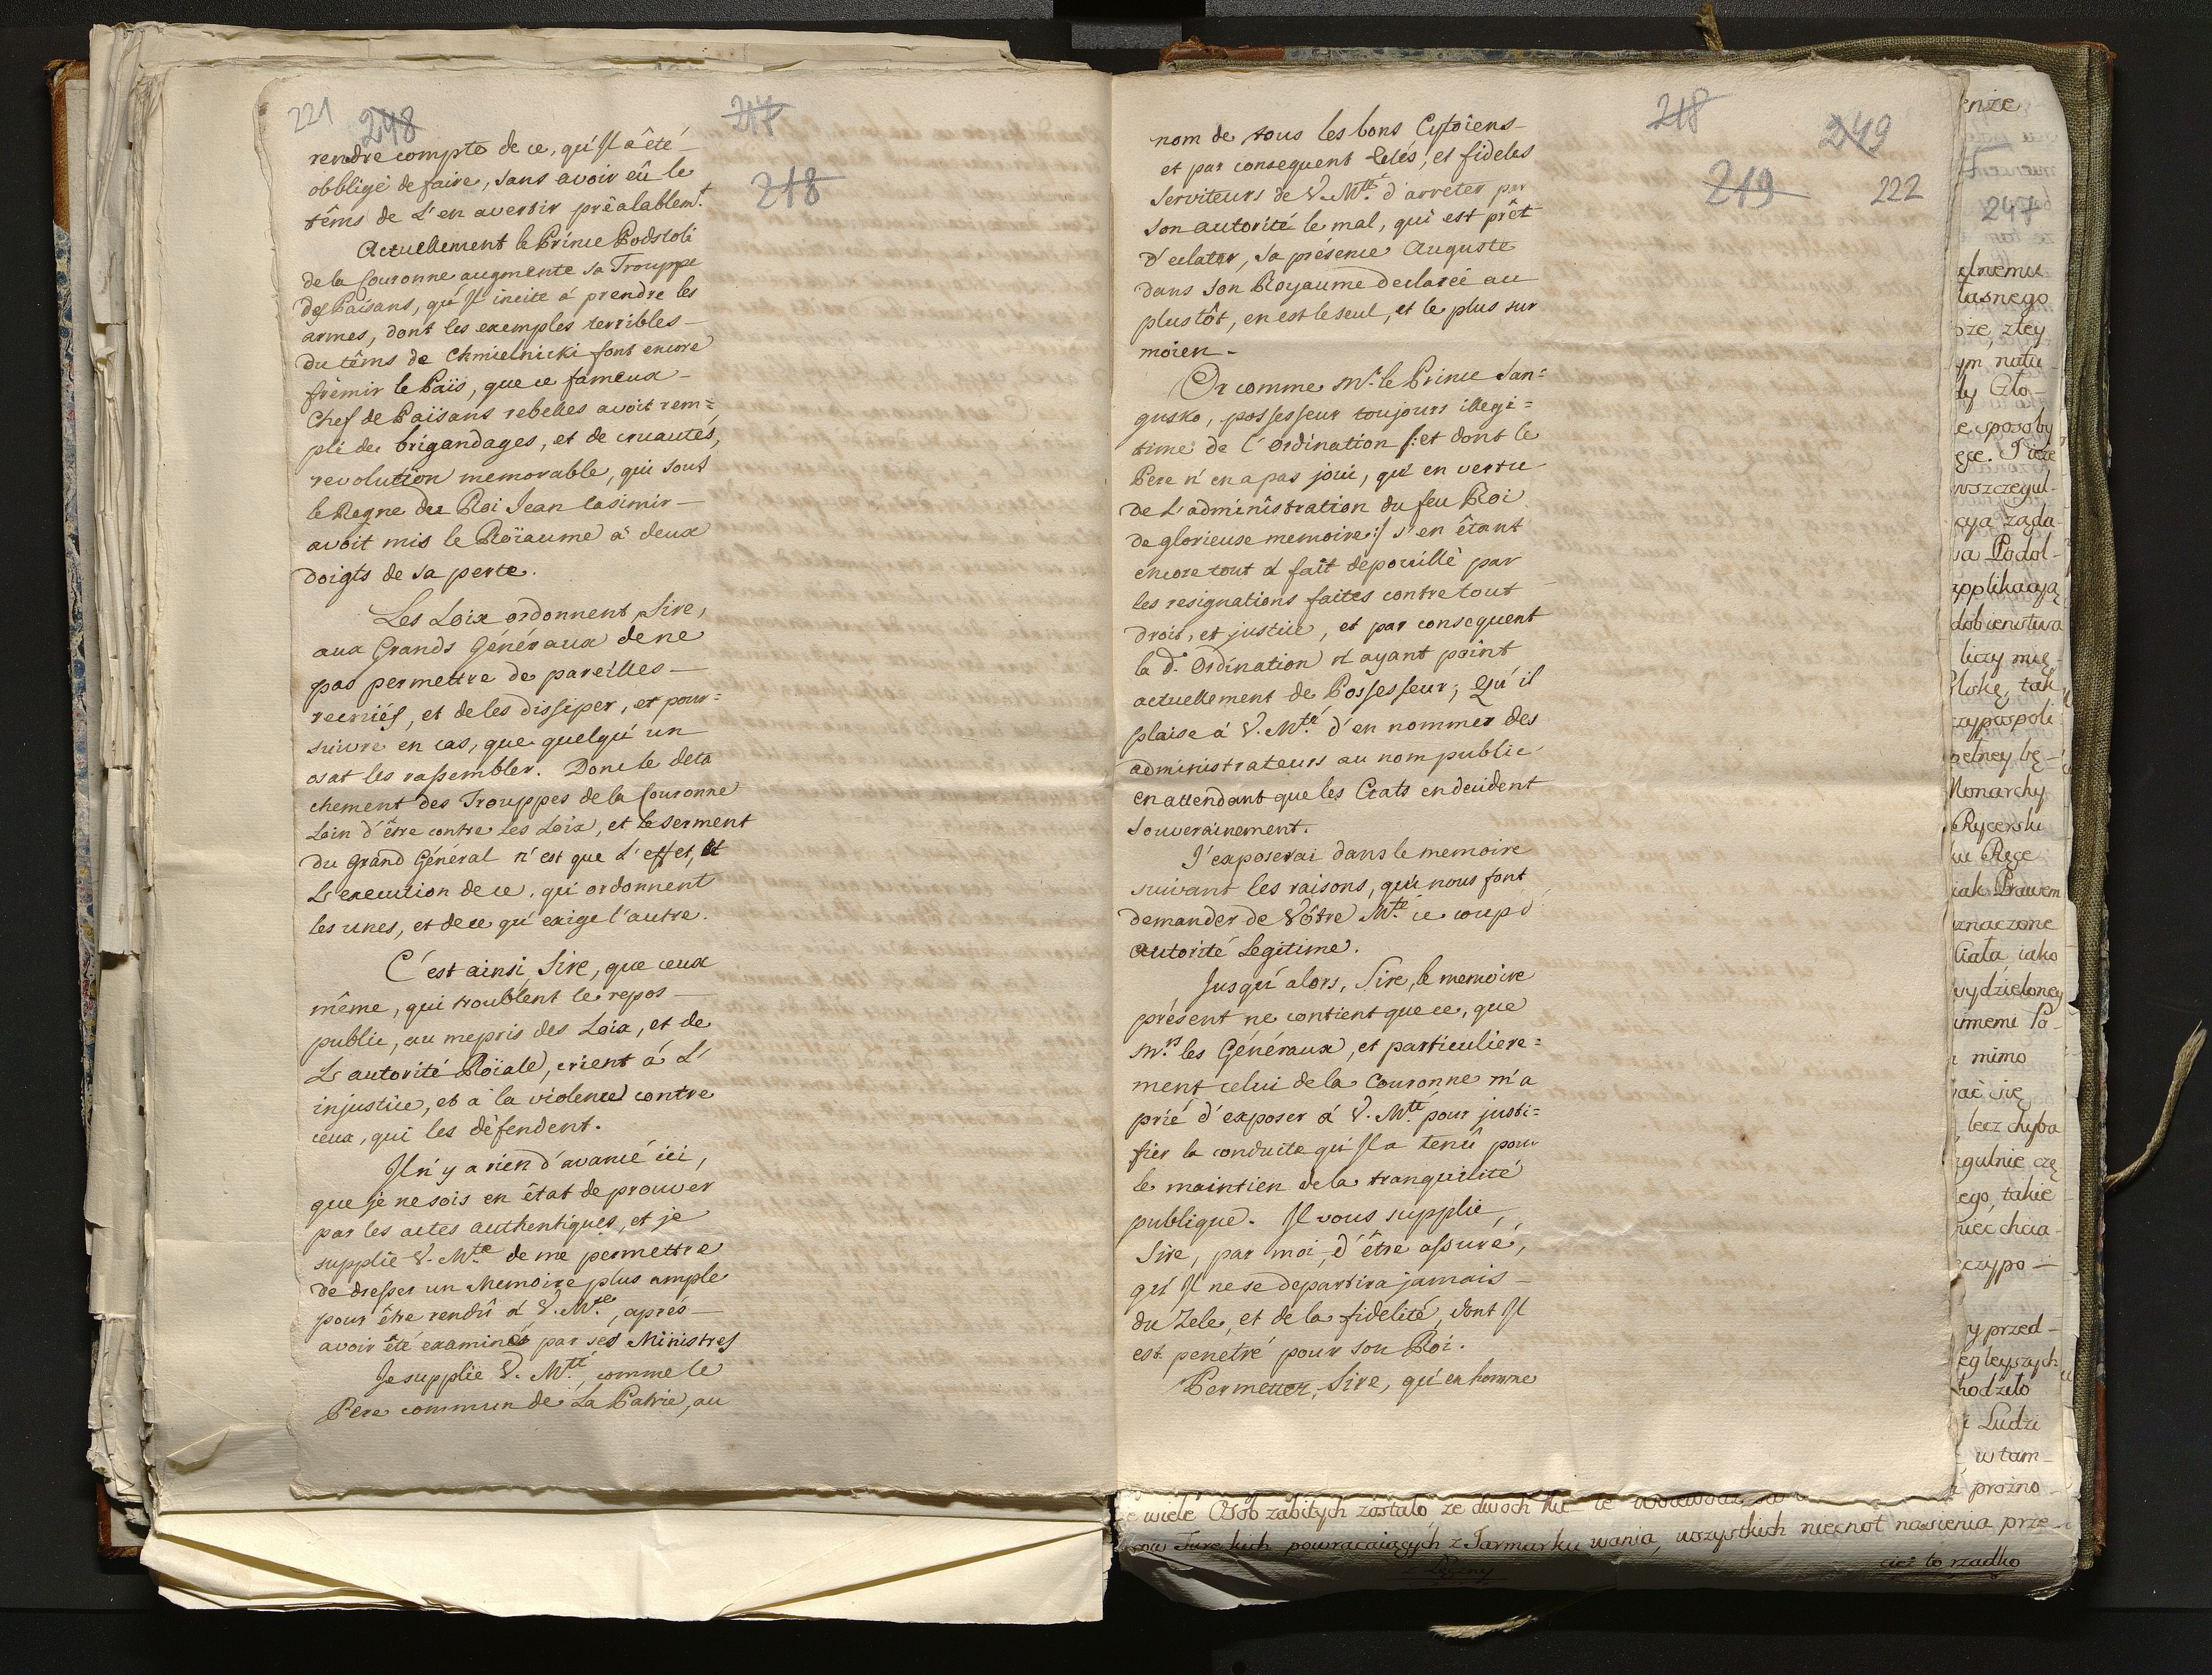 221 248 217
218
rendre compte de ce, qu'Il a êté
obbligé de faire, sans avoir eû le
têms de L'en avertir prêalablemt.
Actuellement le Prince Podstoli
de la Couronne augmente sa Trouppe
des Païsans, qu'Il incite á prendre les
armes, dont les exemples terribles
du têms de Chmielnicki font encore
frêmir le Païs, que ce fameux
Chef de Païsans rebelles avoit rem=
pli de brigandages, et de cruautés,
revolution memorable, qui sous
le Regne du Roi Jean Casimir
avoit mis le Roïaume à deux
doigts de sa perte.
Les Loix ordonnent, Sire,
aux Grands Généraux de ne
pas permettre de pareilles
recrües, et de les dissiper, et pour=
suivre en cas, que quelqu'un
osat les rassembler. Donc le deta
chement des Trouppes de la Couronne
Loin d'être contre les Loix, et le serment
du Grand Général n'est que L'effet, et
L'execution de ce, qui ordonnent
les unes, et de ce qu'exige l'autre.
C'est ainsi, Sire, que ceux
même, qui troublent le repos
public, au mepris des Loix, et de
L'autorité Roïale, crient á L'
injustice, et à la violence contre
ceux, qui les défendent.
Il n'y a rien d'avancé ici,
que je ne sois en êtat de prouver
par les actes authentiques, et je
supplie V. Mté de me permettre
de dresser un Memoire plus ample
pour être rendû á V. Mté, aprés
avoir êté examiné par ses Ministres
Je supplie V. Mté, comme le
Pere commun de La Patrie, au
218 249
219 222
nom de tous les bons Cytoïens
et par consequent zelés, et fideles
Serviteurs de V. Mté d'arrêter par
son autorité le mal, qui est prêt
d'eclater, sa présence Auguste
dans son Royaume declarée au
plustôt, en est le seul, et le plus sur
moïen.
Or comme Mr. le Prince San=
gusko, possesseur toujours illegi=
time de l'Ordination /: et dont le
Pere n'en a pas joui, qu'en vertu
de L'administration du feu Roi
de glorieuse memoire :/ s'en êtant
encore tout á fait dépouillé par
les resignations faites contre tout
droit, et justice, et par consequent
la d. Ordination n'ayant point
actuellement de Possesseur; Qu'il
plaise á V. Mté d'en nommer des
administrateurs au nom public
en attendant que les Etats en decident
souverainement.
J'exposerai dans le memoire
suivant les raisons, qui nous font
demander de Vôtre Mté ce coup d'
autorité Legitime.
Jusqu'alors, Sire, le memoire
présent ne contient que ce, que
Mrs les Généraux, et particuliere=
ment celui de la Couronne m'a
prié d'exposer á V. Mté pour justi=
fier la conduite qu'Il a tenû pour
le maintien de la tranquilité
publique. Il vous supplie,
Sire, par moi, d'être assuré,
qu'Il ne se departira jamais
du Zele, et de la fidelité, dont Il
est penetré pour son Roi.
Permettez, Sire, qu'en homme
247
wiele Osób zabitych zostało ze dwoch
Tureckich powracaiących z Jarmarku wania, wszystkich niecnot nasienia prze
to rzadko